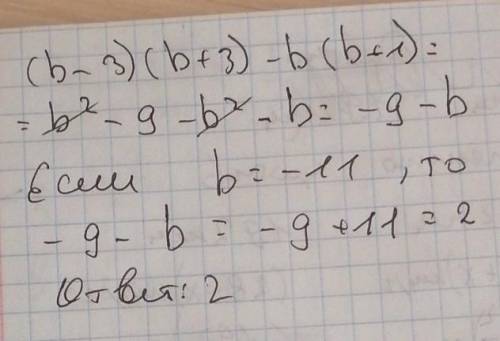 (b-3)(b+3)-b(b+1)=
=b²-9-b²-b=-9-b
Если b=-11, то
-9-b=-9+11=2
Ответ: 2